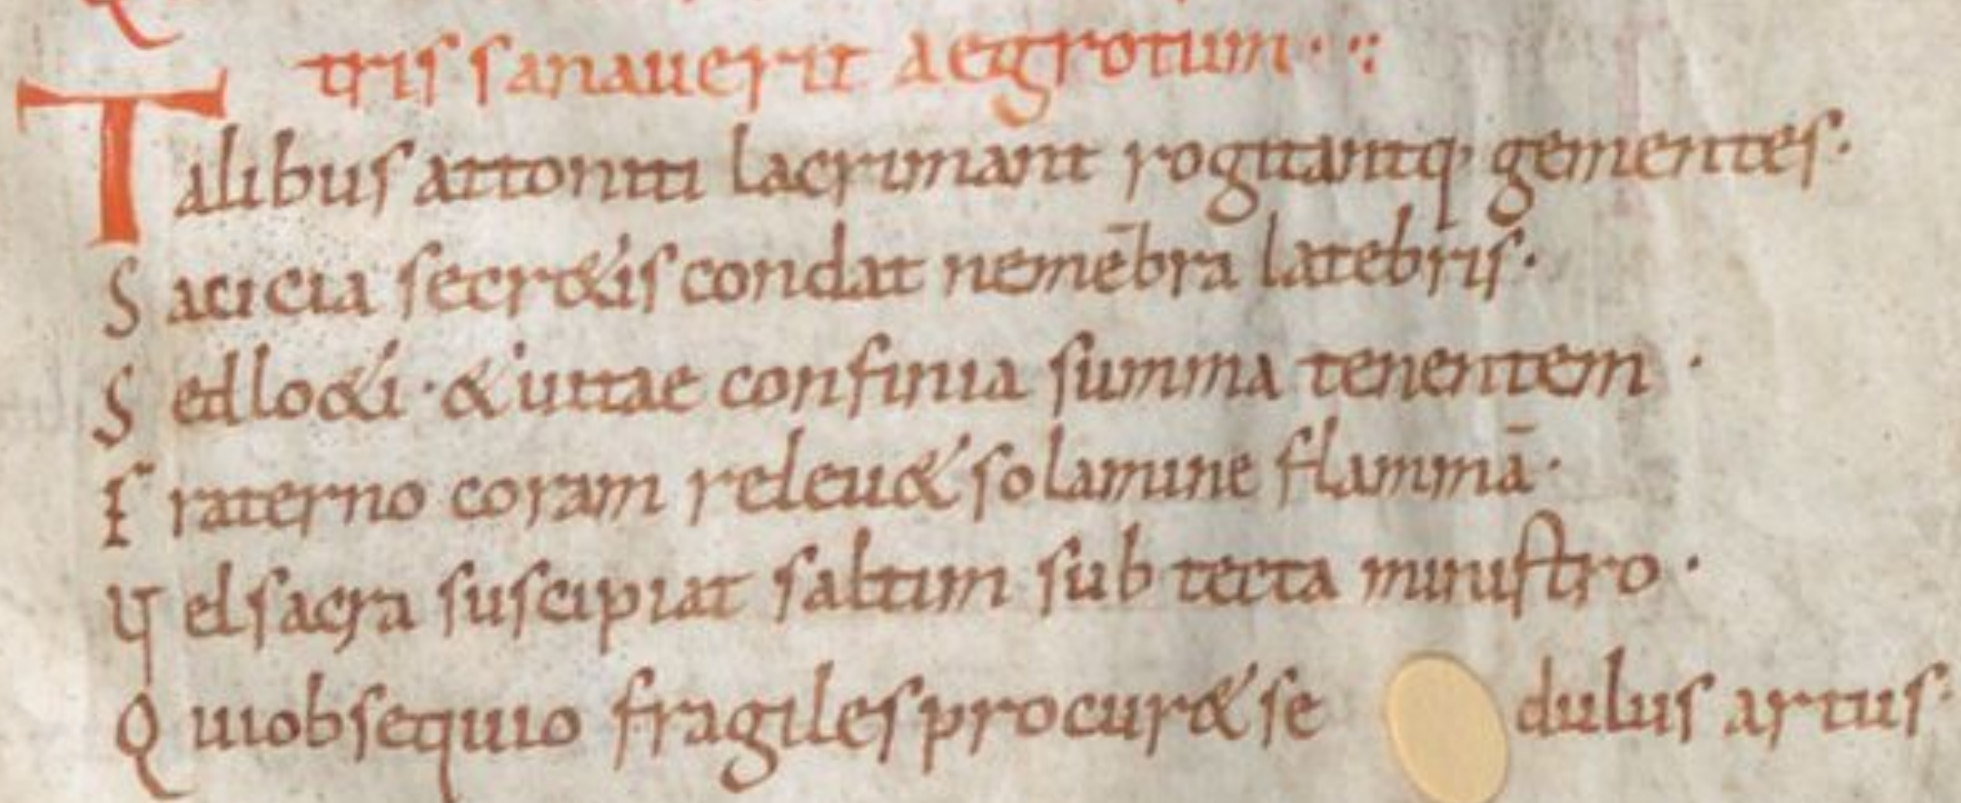 tris sanauerit aegrotum · ·:
Talibus attoniti lacrimant rogitantq; gementes·
Saucia secr&is condat nemēbra latebris·
Sed lo&i · & uitae confinia summa tenentem ·
Fraterno coram releu& solamine flammā·
Vel sacra suscipiat saltim sub tecta ministro ·
Qui obsequio fragiles procur& se dulus artus·